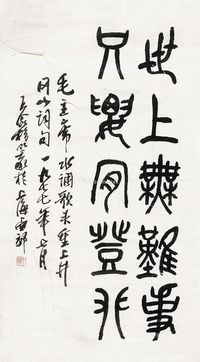 世上無難事
只要肯登攀
毛主席水調歌头重上井
冈山词句一九七七年七月
王个簃篆於上海